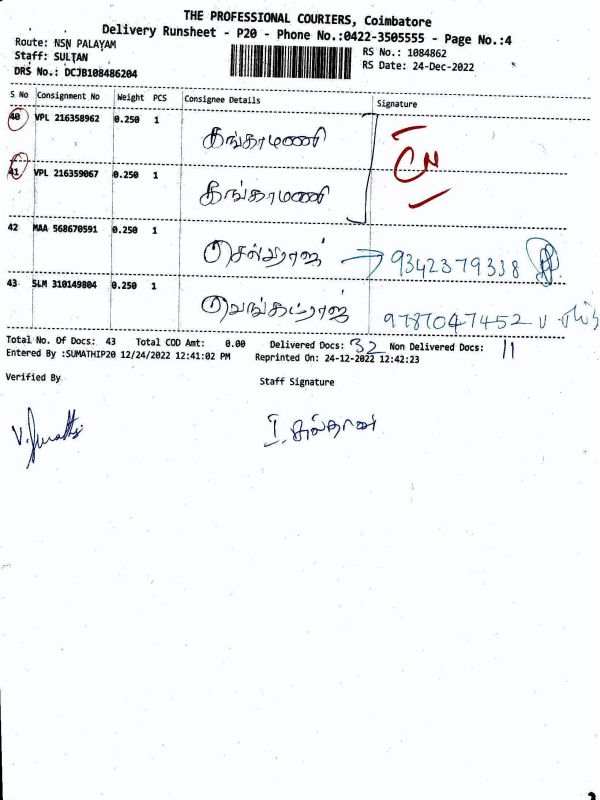 THE PROFESSIONAL COURIERS, Coimbatore
Delivery Runsheet - P20 - Phone No.:0422-3505555 - Page No.:4
Route: NSN PALAYAM
Staff: SULTAN
DRS No.: DCJB108486204
RS No.: 1084862
RS Date: 24-Dec-2022
S No Consignment No Weight PCS Consignee Details Signature
40 VPL 216358962 0.250 1 தங்கமணி
41 VPL 216359067 0.250 1 தங்கமணி
CN
42 MAA 568670591 0.250 1 செல்வராஜ் → 9342379338
43 SLM 310149804 0.250 1 வெங்கட்ராஜ் 9787047452
Total No. Of Docs: 43 Total COD Amt: 0.00 Delivered Docs: 32 Non Delivered Docs: 11
Entered By :SUMATHIP20 12/24/2022 12:41:02 PM Reprinted On: 24-12-2022 12:42:23
Verified By Staff Signature
I. சுல்தான்